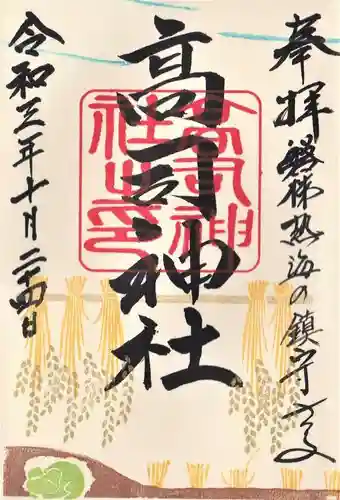 奉拝 磐梯熱海の鎮守
高司神社
高司神
社之印
令和三年十月二十四日